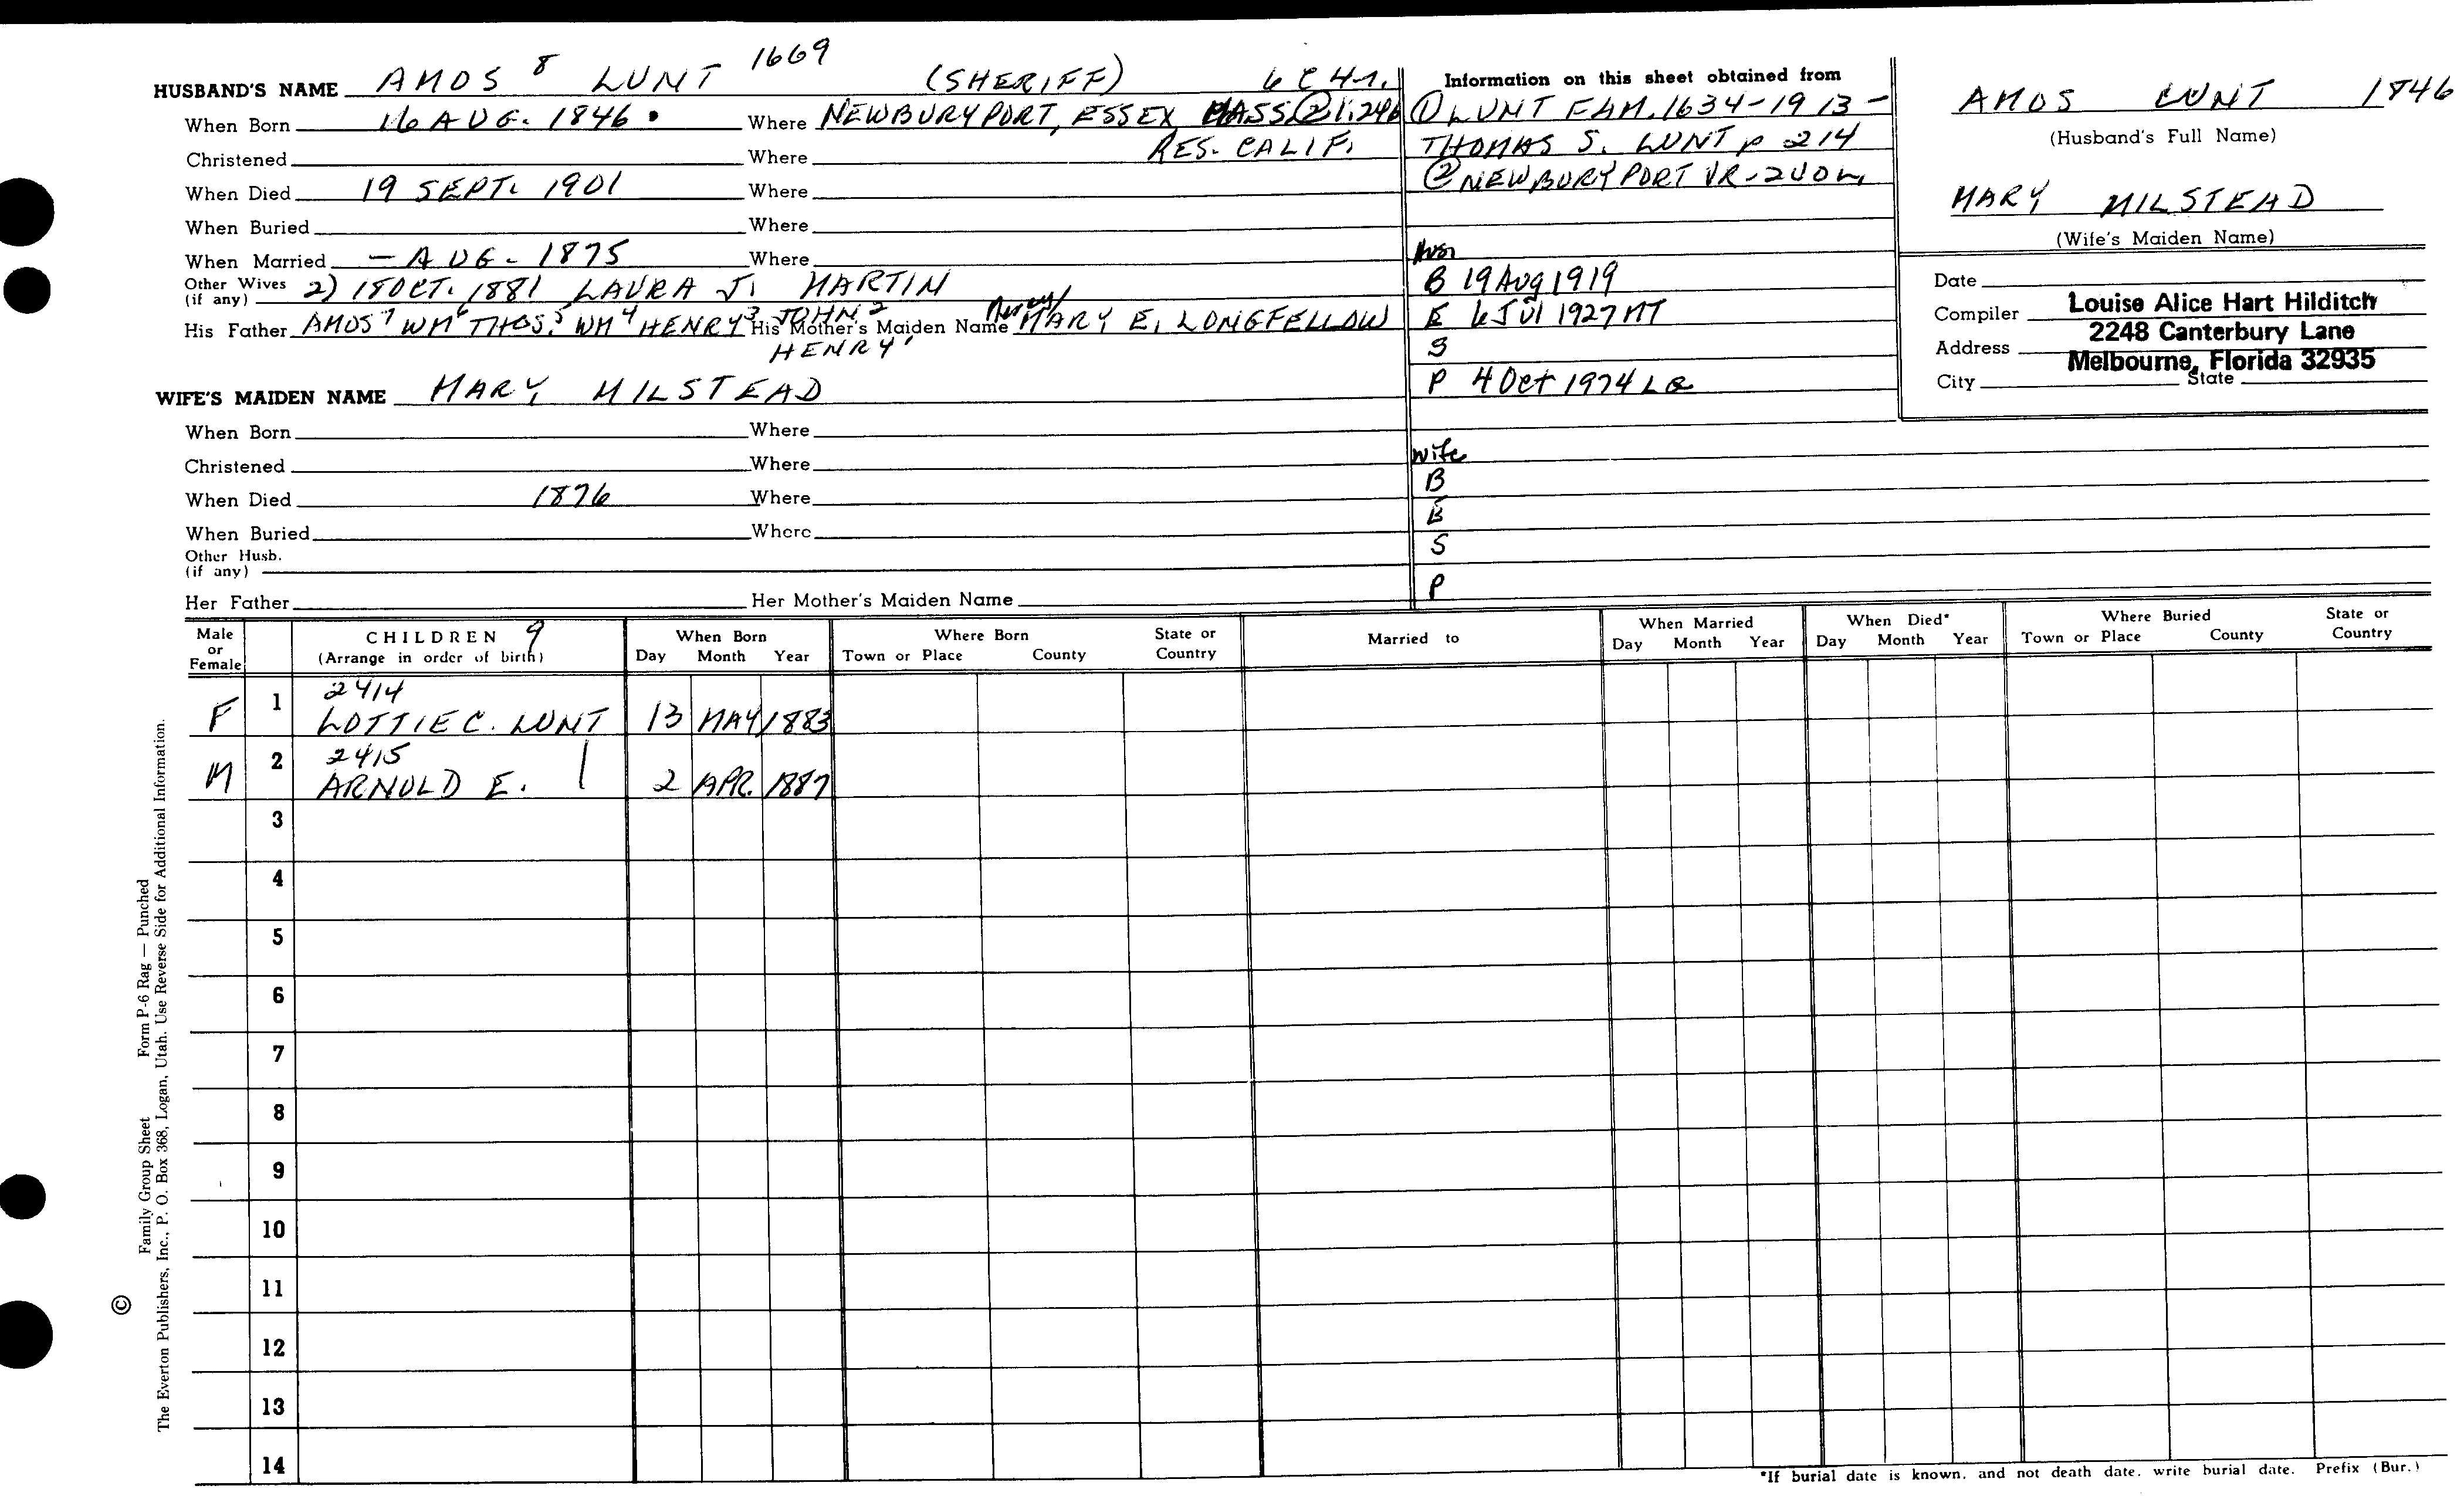 HUSBAND'S NAME AMOS 8 LUNT 1669 (SHERIFF) 6C4r.
When Born 16 AUG. 1846 . Where NEWBURYPORT, ESSEX MASS ② 1:246
Christened Where RES. CALIF.
When Died 19 SEPT. 1901 Where
When Buried Where
When Married — AUG - 1875 Where
Other Wives (if any) 2) 18 OCT. 1881 LAURA J. MARTIN
His Father AMOS 7 WM 6 THOS. 5 WM 4 HENRY 3 JOHN 2 HENRY 1 His Mother's Maiden Name MARY E. LONGFELLOW
WIFE'S MAIDEN NAME MARY MILSTEAD
When Born Where
Christened Where
When Died 1876 Where
When Buried Where
Other Husb.
(if any)
Her Father Her Mother's Maiden Name
Information on this sheet obtained from
① LUNT FAM. 1634-1913 -
THOMAS S. LUNT p 214
② NEWBURYPORT VR - 2 VOL.
B 19 Aug 1919
E 6 Jul 1927 MT
S
P 4 Oct 1974 LG
wife
B
E
S
P
AMOS LUNT 1846
(Husband's Full Name)
MARY MILSTEAD
(Wife's Maiden Name)
Date
Compiler Louise Alice Hart Hilditch
Address 2248 Canterbury Lane
Melbourne, Florida 32935
City State
Male or Female CHILDREN 9 (Arrange in order of birth) When Born Day Month Year Where Born Town or Place County State or Country Married to When Married Day Month Year When Died* Day Month Year Where Buried Town or Place County State or Country
F 1 2414 LOTTIE C. LUNT 13 MAY 1883
M 2 2415 ARNOLD E. | 2 APR. 1887
3
4
5
6
7
8
9
10
11
12
13
14
*If burial date is known, and not death date, write burial date. Prefix (Bur.)
© Family Group Sheet Form P-6 Rag — Punched
The Everton Publishers, Inc., P. O. Box 368, Logan, Utah. Use Reverse Side for Additional Information.